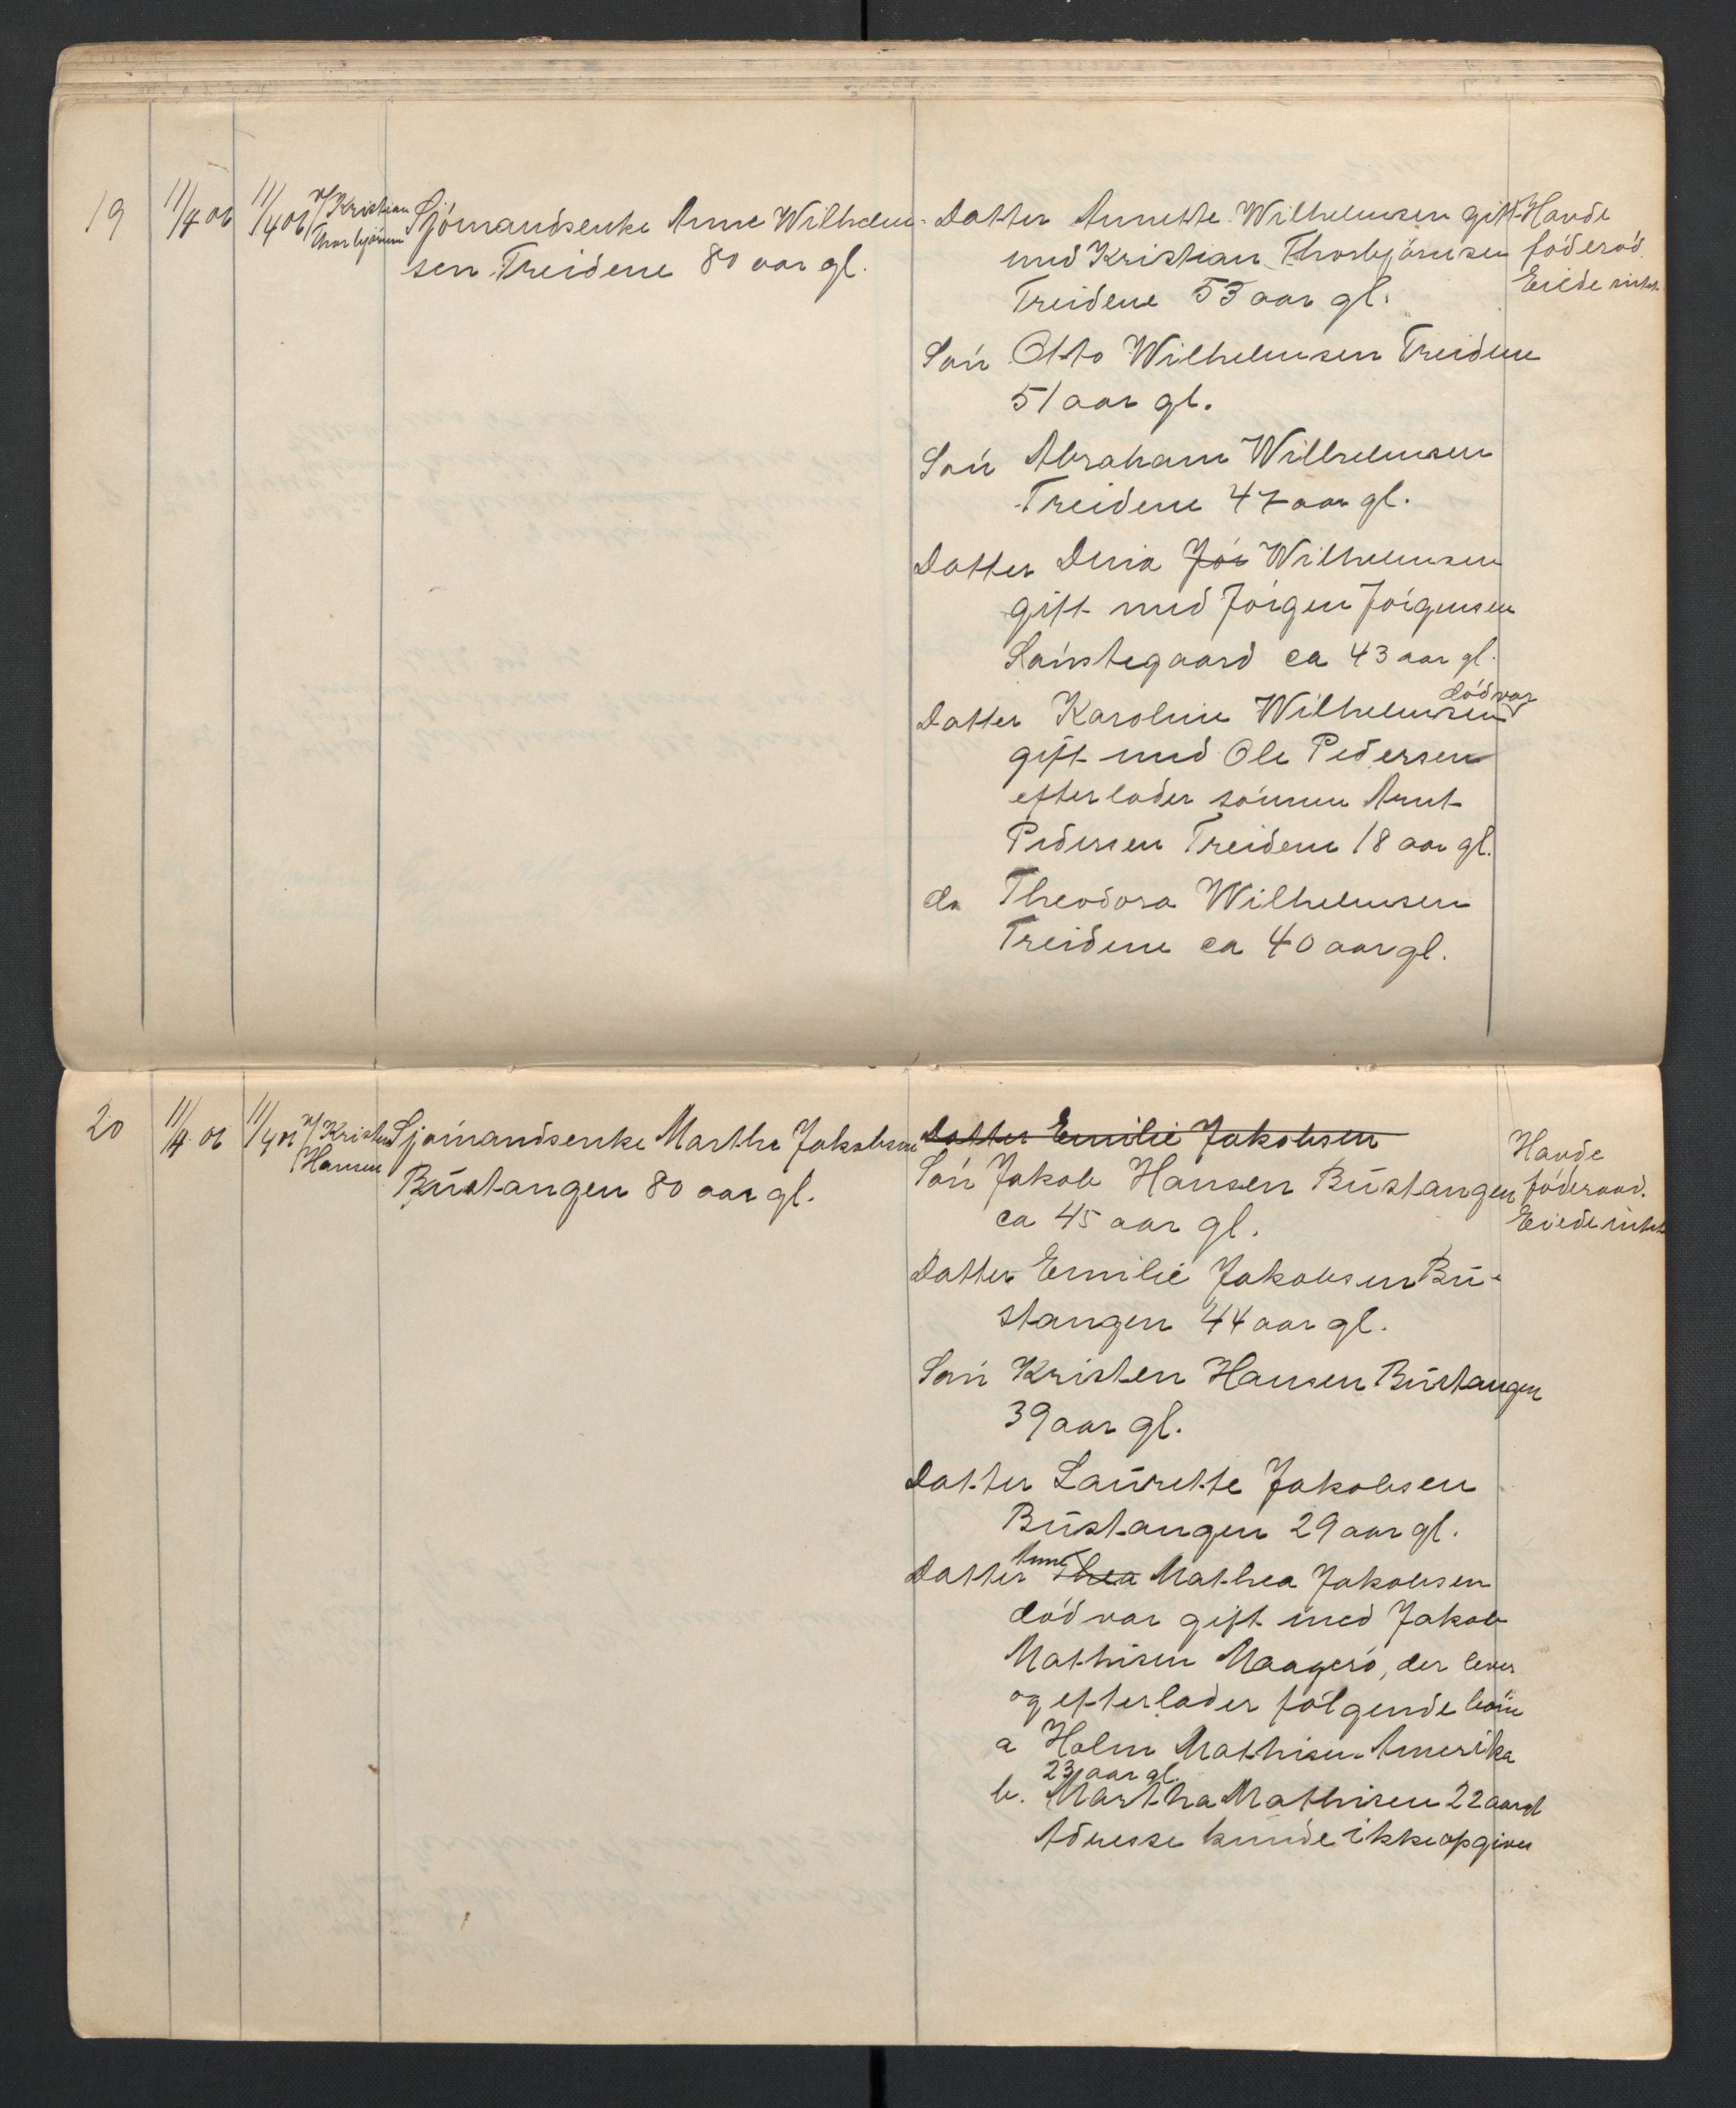 19
11/4 06
11/4 06
v/ Kristian
Thorbjörnsen
Sjómandsenke Anne Wilhelm-
sen Treidene 80 aar gl.
Datter Annette Wilhelmsen gift
med Kristian Thorbjörnsen
Treidene 53 aar gl.
Havde
föderaad.
Eiede intet
Sön Otto Wilhelmsen Treidene
51 aar gl.
Sön Abraham Wilhelmsen
Treidene 47 aar gl.
Datter Dina Jör Wilhelmsen
gift med Jörgen Jörgensen
Sönstegaard ca 43 aar gl.
Datter Karoline Wilhelmsen död var
gift med Ole Pedersen
efterlader sönnen Arnt
Pedersen Treidene 18 aar gl.
do Theodora Wilhelmsen
Treidene ca 40 aar gl.
20
11/4 06
11/4 06
v/ Kristen
Hansen
Sjömandsenke Marthe Jakobsen
Bustangen 80 aar gl.
Datter Emilie Jakobsen
Sön Jakob Hansen Bustangen
ca 45 aar gl.
Havde
föderaad.
Eiede intet
Datter Emilie Jakobsen Bu-
stangen 44 aar gl.
Sön Kristen Hansen Bustangen
39 aar gl.
Datter Laurette Jakobsen
Bustangen 29 aar gl.
Datter Thea Anne Mathea Jakobsen
död var gift med Jakob
Mathisen Maagerö, der lever
og efterlader fölgende börn
a Holm Mathisen Amerika
23 aar gl.
b. Martha Mathisen 22 aar gl
Adresse kunde ikke opgives